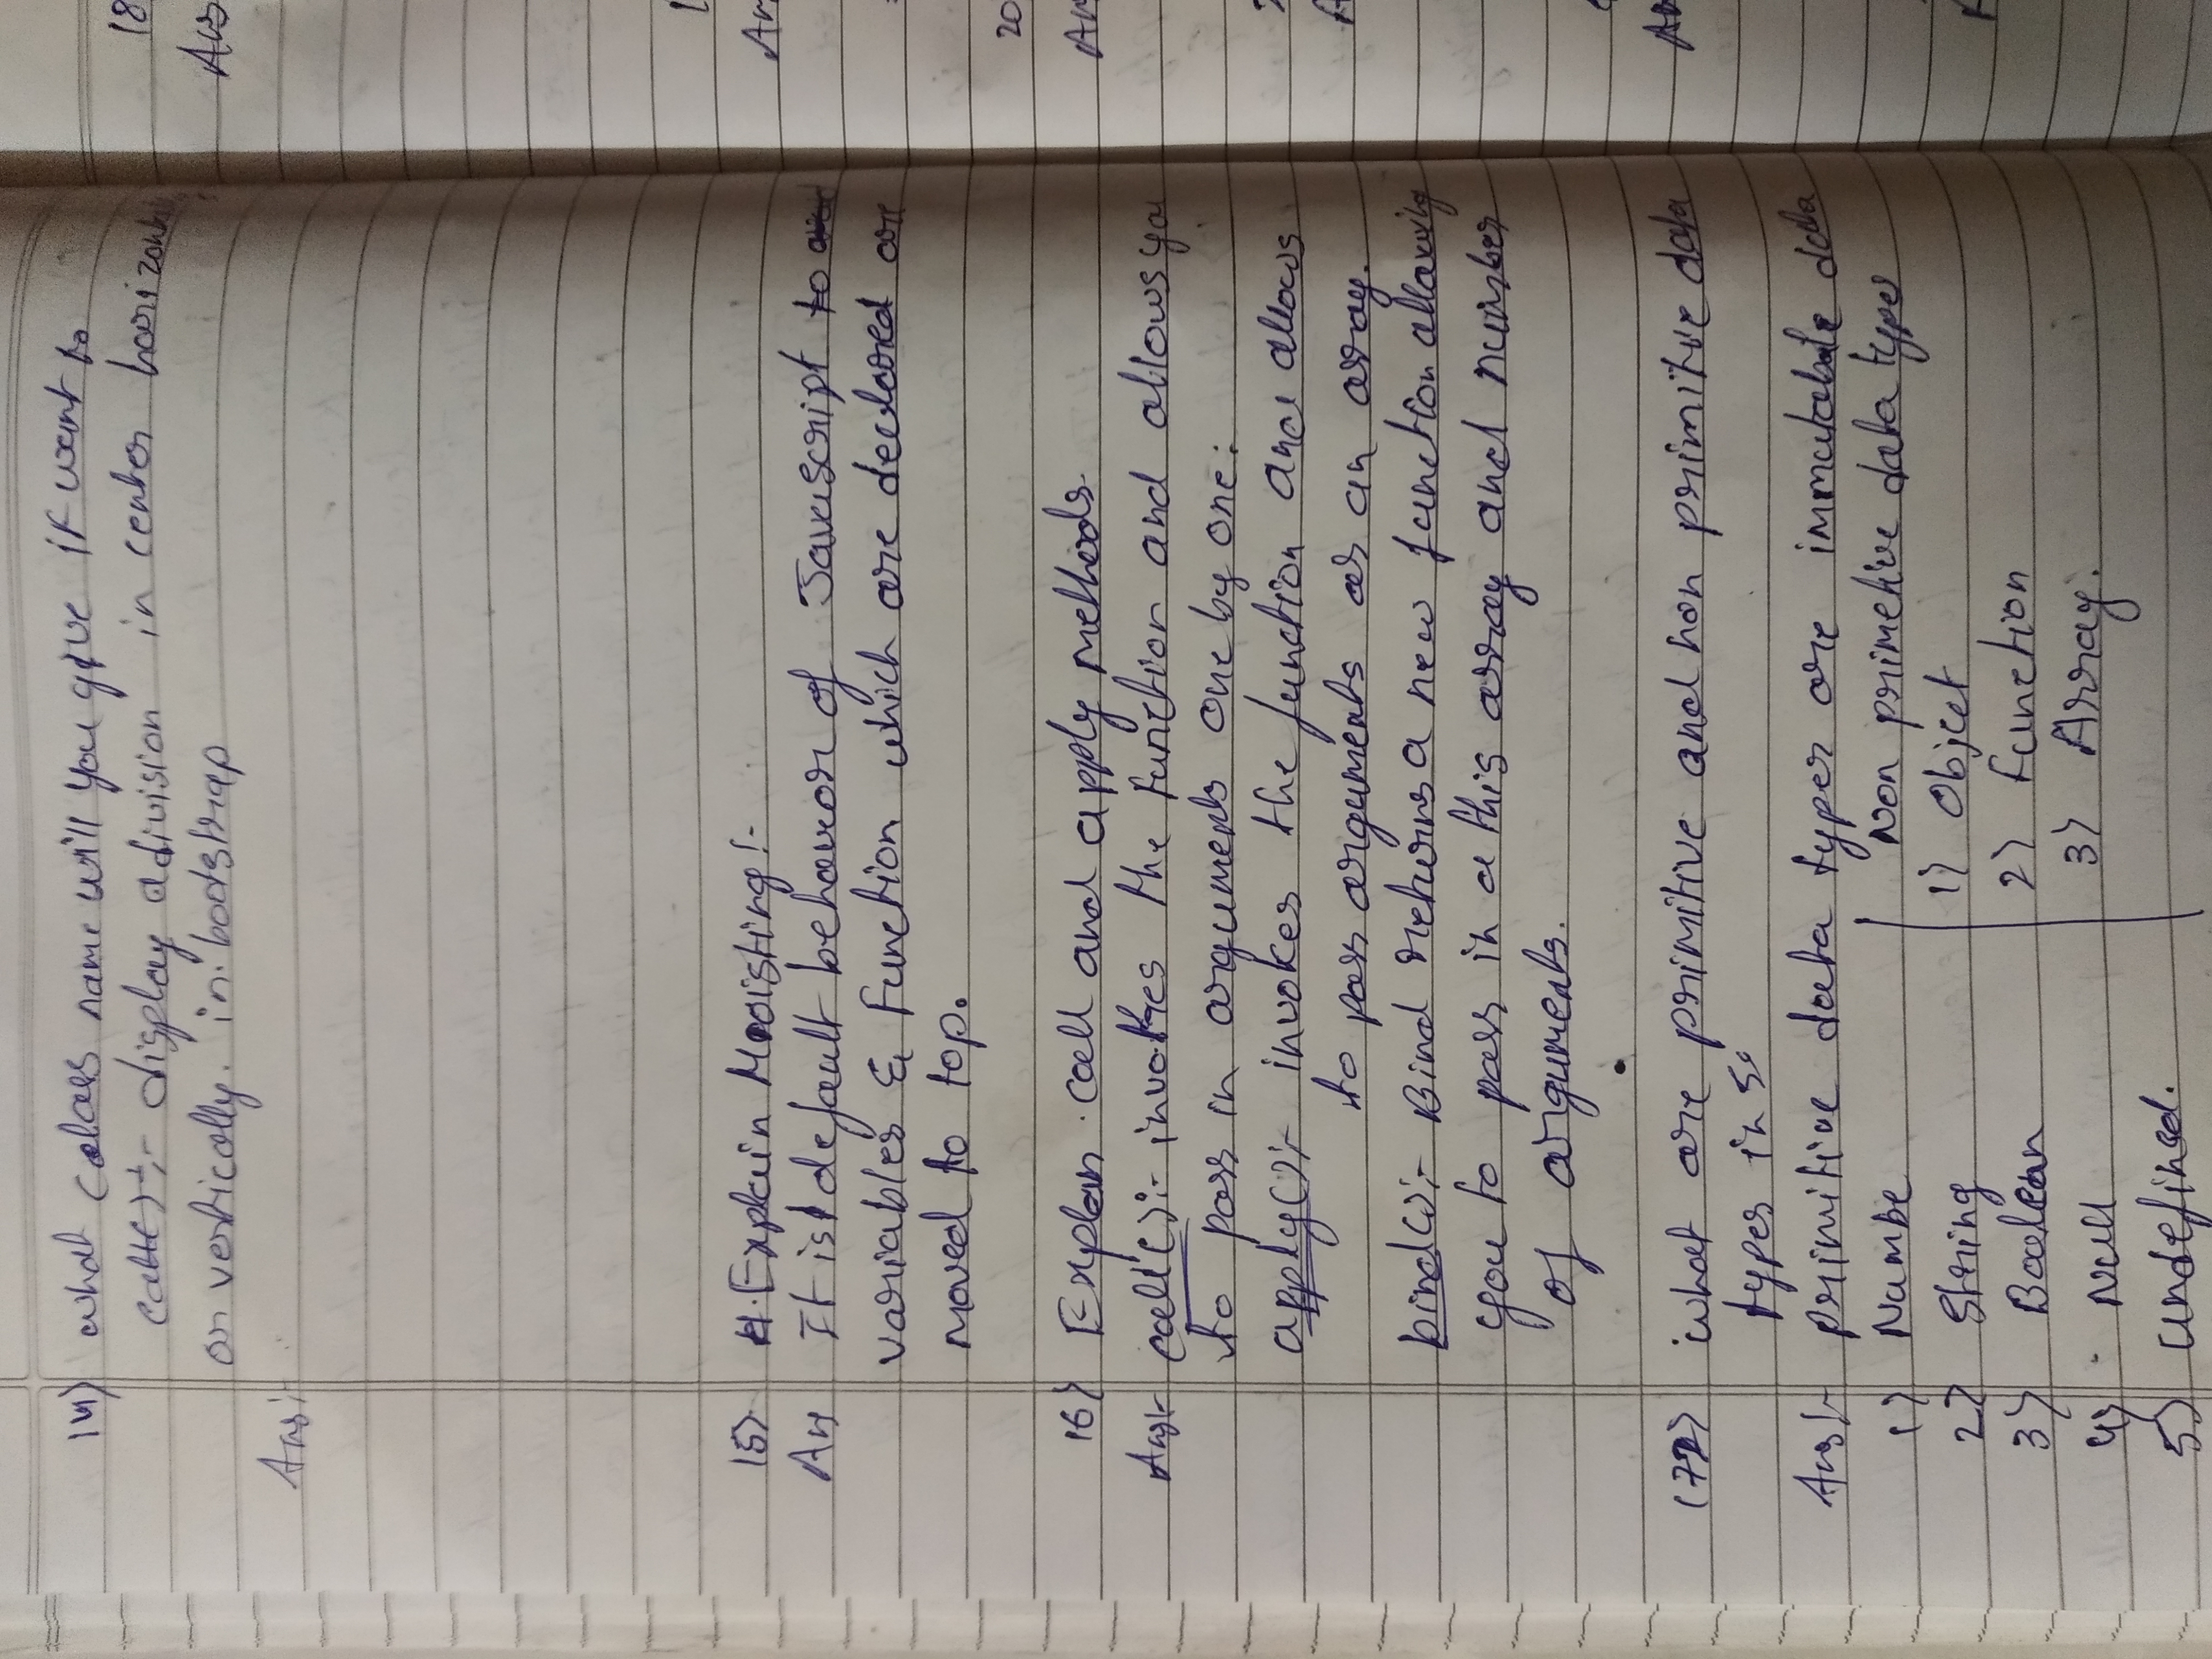 14) what calass name will you give if want to
display a division in center horizonta
or vertically. in bootstrap
Ans:
15) Explain Hoisting:-
An It is default behavior of Javascript to
variables & Function which are declared are
moved to top.
16) Explan call and apply methods.
Ans:- call():- invokes the function and allows you
to pass in arguments one by one.
apply():- invokes the function and allows
to pass arguments as an array.
bind():- Bind returns a new function allowing
you to pass in a this array and number
of arguments.
17) what are primitive and non primitive data
types in s.
Ans:- primitive data types are immutable data
Non primetive data types
1) Numbe
1) Object
2) String
2) Function
3) Boolean
3) Array.
4) Null
5) undefined.
18
Ans
20